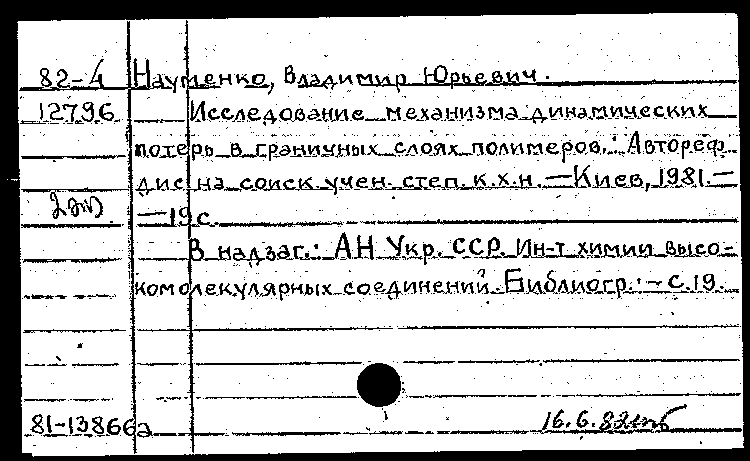 82-4 Науменко, Владимир Юрьевич.
12796 Исследование механизма динамических
потерь в граничных слоях полимеров.: Автореф.
дис на соиск учен. степ. к.х.н. —Киев, 1981.—
—19с.
В надзаг.: АН Укр. ССР. Ин-т химии высо-
комолекулярных соединений. Библиогр.: — с.19.
81-13866а 16.6.82